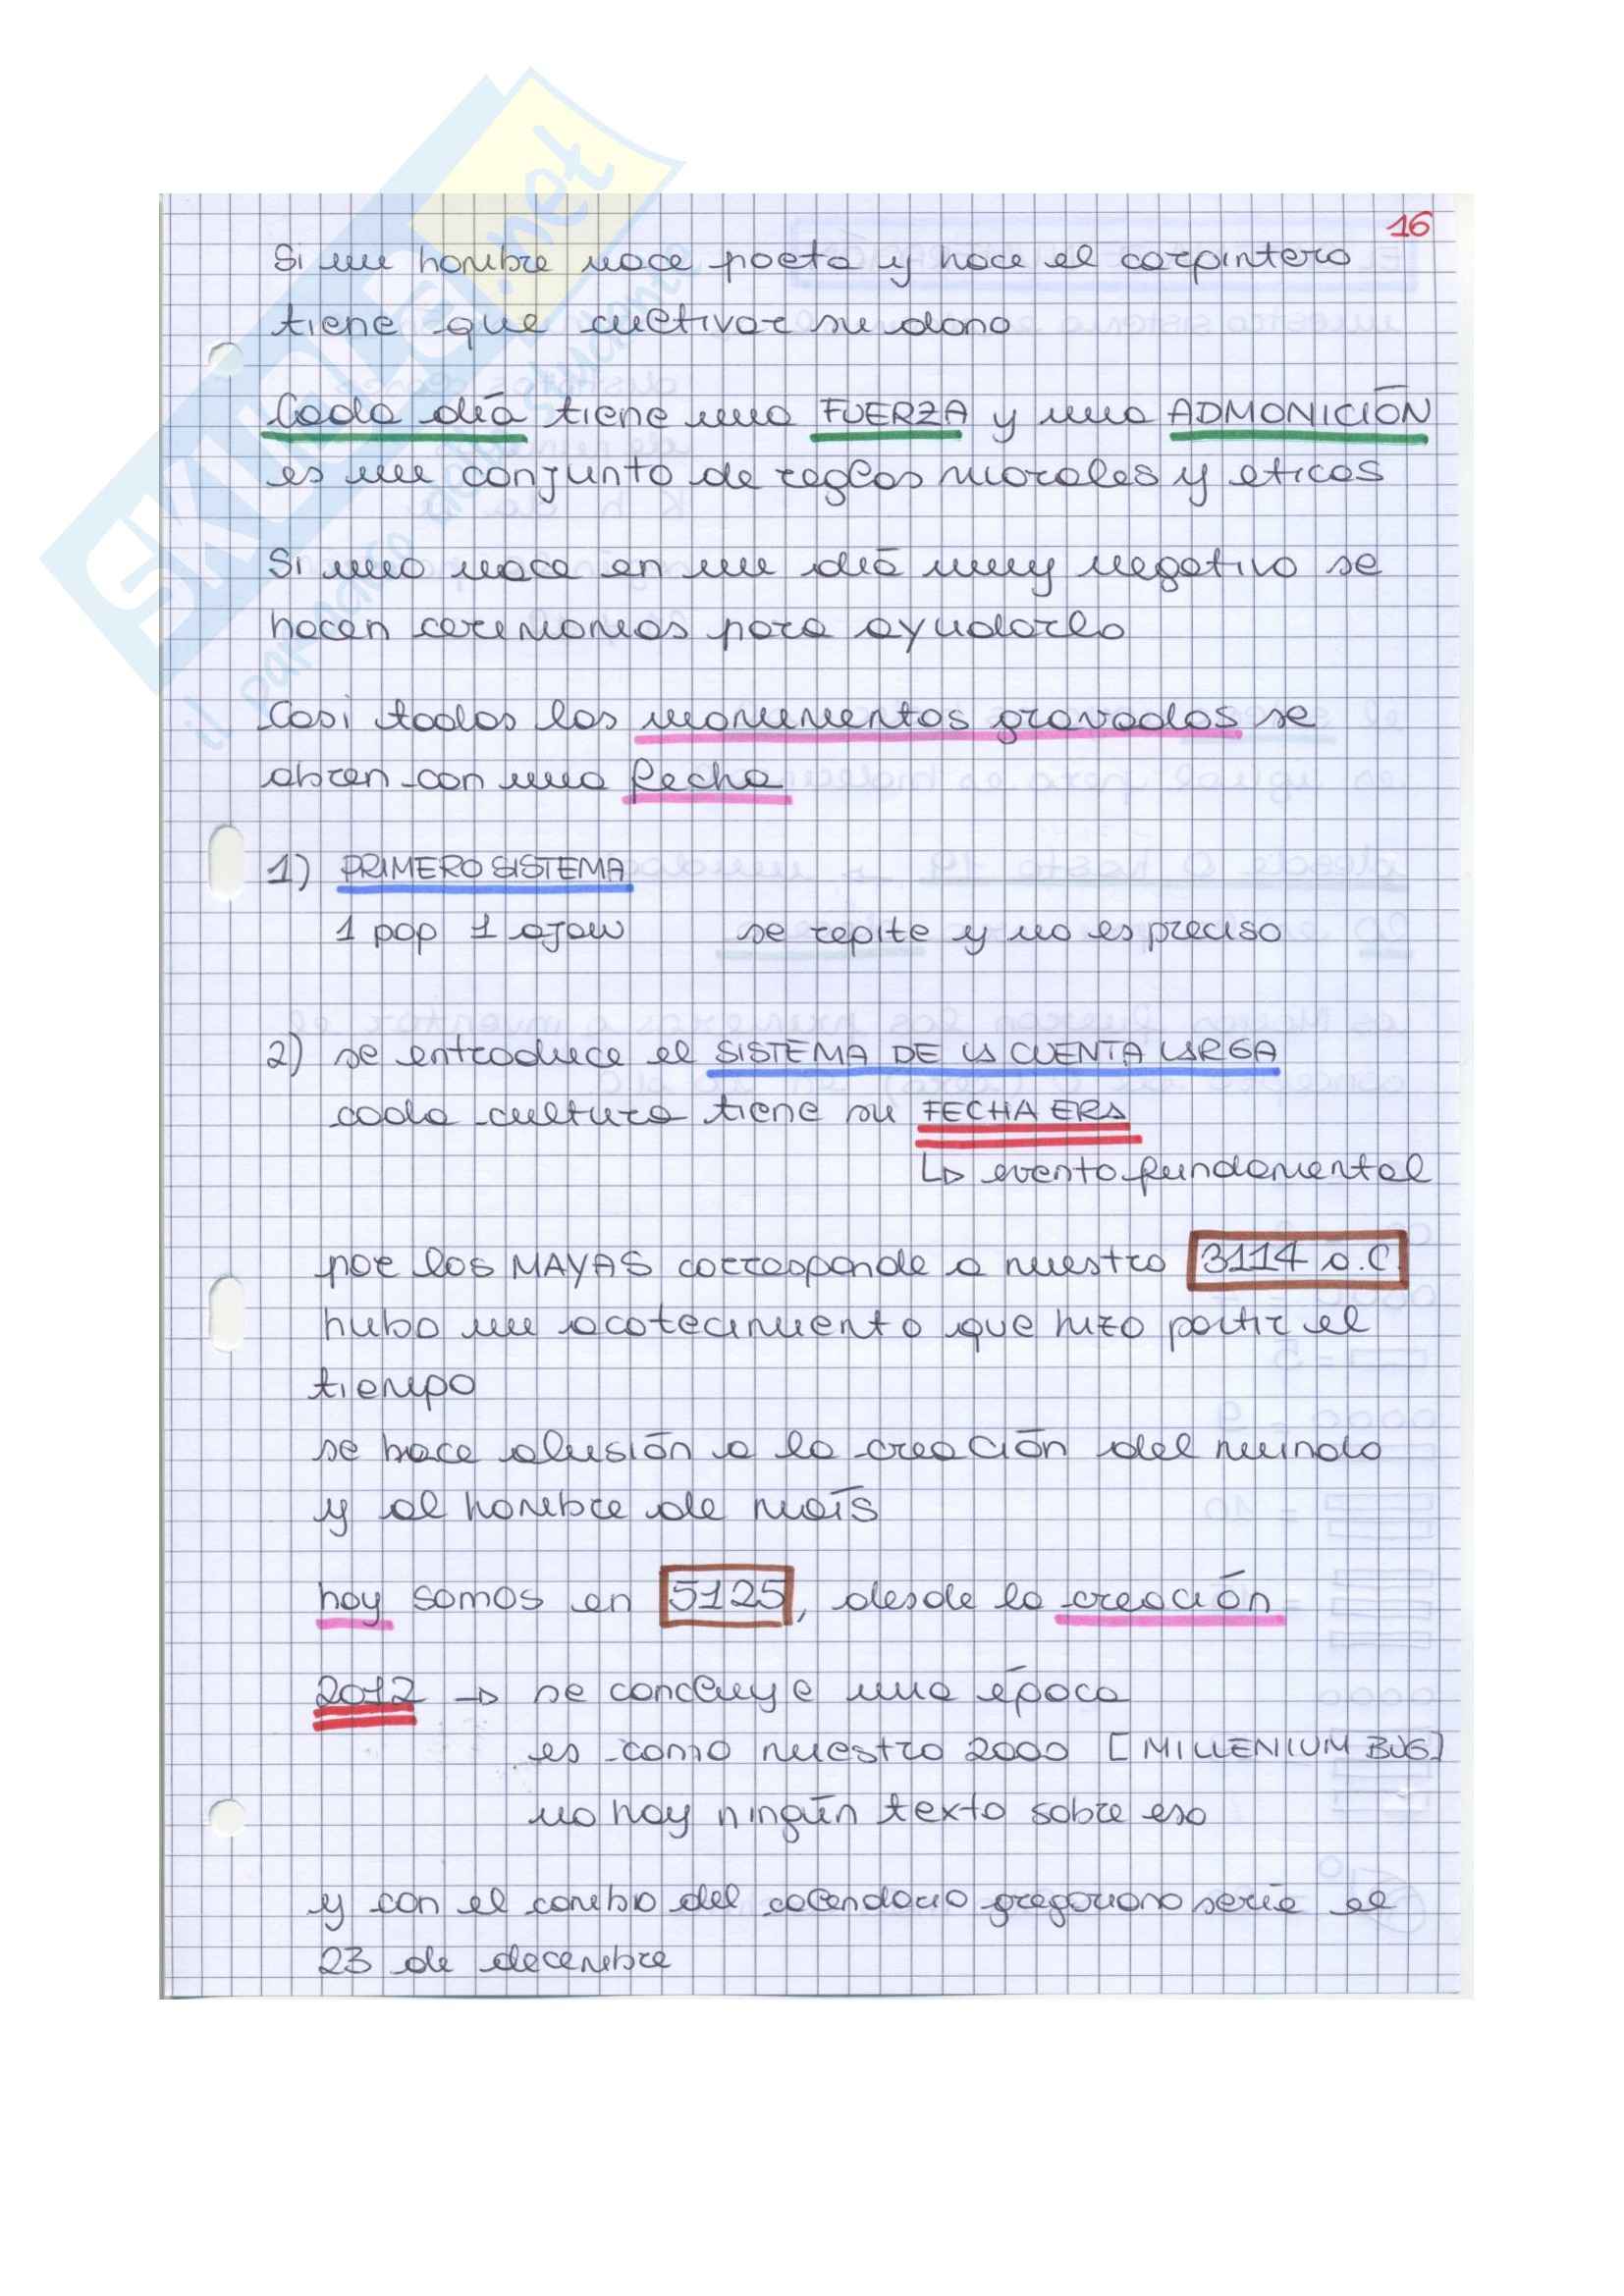 16
Si un hombre nace poeta y hace el carpintero
tiene que cultivar su dono
Cada día tiene una FUERZA y una ADMONICIÓN
es un conjunto de reglas morales y eticas
Si uno nace en un día muy negativo se
hacen ceremonias para ayudarlo
Casi todos los monumentos gravados se
abren con una fecha
1) PRIMERO SISTEMA
1 pop 1 ajaw se repite y no es preciso
2) se entroduce el SISTEMA DE LA CUENTA LARGA
cada cultura tiene su FECHA ERA
↳ evento fundamental
por los MAYAS corresponde a nuestro 3114 a.C.
hubo un acotecimiento que hizo partir el
tiempo
se hace alusión a la creación del mundo
y al hombre de maís
hoy somos en 5125, desde la creación
2012 → se concluye una época
es como nuestro 2000 [MILLENIUM BUG]
no hay ningún texto sobre eso
y con el cambio del calendario gregoriano serie el
23 de decembre
SKUOLA.net